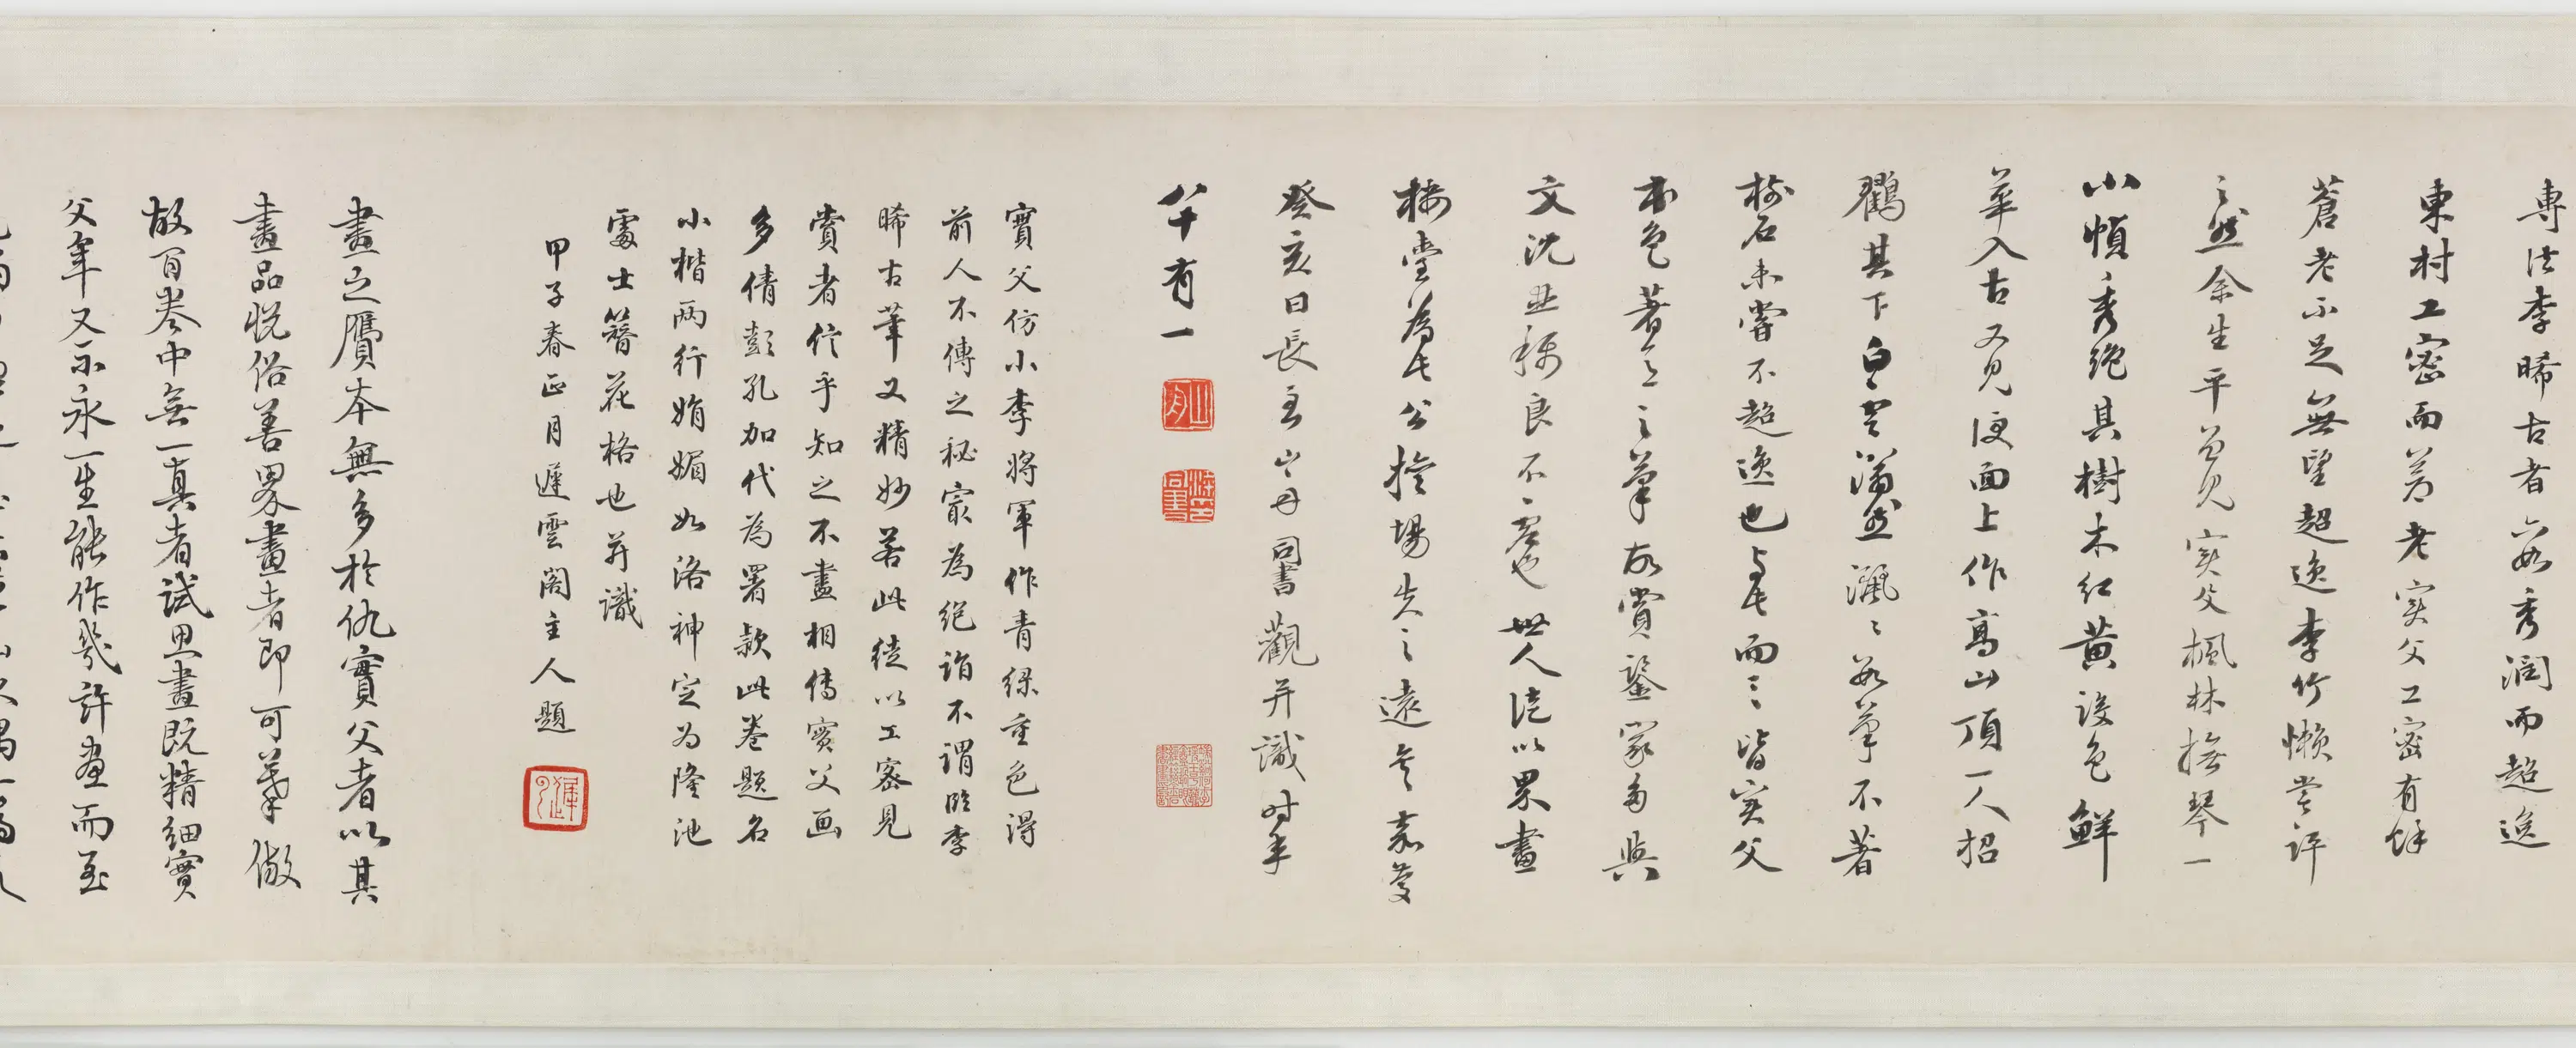 專法李晞古者六如秀潤而超逸
東村工密而蒼老實父工密有餘
蒼老不足無望超逸李竹懶嘗評
之然余生平曾見實父楓林撫琴一
小幀秀絕其樹木紅黃設色鮮
華入古又見便面上作高山頂一人招
鶴其下白雲滃然濕濕數筆不著
樹石未嘗不超逸也而皆實父
本色著之筆故賞鑒家多與
文沈並稱良不虛也世人徒以界畫
樓臺為公擅場失之遠矣嘉慶
癸亥日長至山舟同書觀并識時年
八十有一
實父仿小李將軍作青綠重色得
前人不傳之秘寂為絕詣不謂臨李
晞古筆又精妙若此徒以工密見
賞者信乎知之不盡相傳實父画
多倩彭孔加代為署款此卷題名
小楷兩行娟媚如洛神定為隆池
處士簪花格也并識
甲子春正月遲雲閣主人題
畫之贗本無多於仇實父者以其
畫品悅俗善界畫者即可摹倣
故百卷中無一真者試思畫既精細實
父年又不永一生能作幾許畫而至